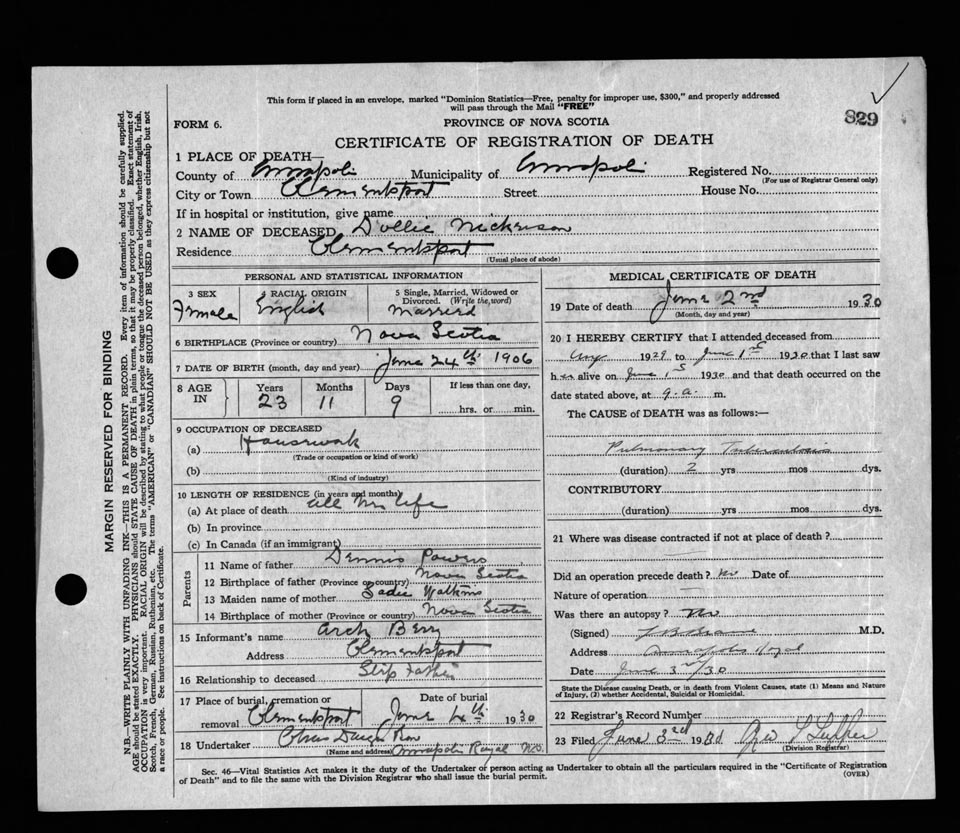 This form if placed in an envelope, marked "Dominion Statistics—Free, penalty for improper use, $300," and properly addressed
will pass through the Mail "FREE"
829
FORM 6.
PROVINCE OF NOVA SCOTIA
CERTIFICATE OF REGISTRATION OF DEATH
1 PLACE OF DEATH—
County of Annapolis Municipality of Annapolis Registered No.
(For use of Registrar General only)
City or Town Clementsport Street House No.
If in hospital or institution, give name
2 NAME OF DECEASED Dollie Nickerson
Residence Clementsport
(Usual place of abode)
PERSONAL AND STATISTICAL INFORMATION
3 SEX 4 RACIAL ORIGIN 5 Single, Married, Widowed or
Divorced. (Write the word)
Female English Married
6 BIRTHPLACE (Province or country) Nova Scotia
7 DATE OF BIRTH (month, day and year) June 24th 1906
8 AGE IN Years Months Days If less than one day,
23 11 9 hrs. or min.
9 OCCUPATION OF DECEASED
(a) Housework
(Trade or occupation or kind of work)
(b)
(Kind of industry)
10 LENGTH OF RESIDENCE (in years and months)
(a) At place of death all her life
(b) In province
(c) In Canada (if an immigrant)
Parents
11 Name of father Dennis Powers
12 Birthplace of father (Province or country) Nova Scotia
13 Maiden name of mother Sadie Watkins
14 Birthplace of mother (Province or country) Nova Scotia
15 Informant's name Arch Berry
Address Clementsport
16 Relationship to deceased Step Father
17 Place of burial, cremation or Date of burial
removal Clementsport June 4th 1930
18 Undertaker
(Name and address) Annapolis Royal N.S.
MEDICAL CERTIFICATE OF DEATH
19 Date of death June 2nd 1930
(Month, day and year)
20 I HEREBY CERTIFY that I attended deceased from
Aug 1929 to June 1st 1930 that I last saw
her alive on June 1st 1930 and that death occurred on the
date stated above, at 9.a. m.
The CAUSE of DEATH was as follows:—
Pulmonary Tuberculosis
(duration) 2 yrs mos dys.
CONTRIBUTORY
(duration) yrs mos dys.
21 Where was disease contracted if not at place of death?
Did an operation precede death? No Date of
Nature of operation
Was there an autopsy? No
(Signed) M.D.
Address Annapolis Royal
Date June 3rd/30
State the Disease causing Death, or in death from Violent Causes, state (1) Means and Nature
of Injury, (2) whether Accidental, Suicidal or Homicidal.
22 Registrar's Record Number
23 Filed June 3rd 1930
(Division Registrar)
Sec. 46—Vital Statistics Act makes it the duty of the Undertaker or person acting as Undertaker to obtain all the particulars required in the "Certificate of Registration
of Death" and to file the same with the Division Registrar who shall issue the burial permit.
(OVER)
MARGIN RESERVED FOR BINDING
N.B.—WRITE PLAINLY WITH UNFADING INK—THIS IS A PERMANENT RECORD. Every item of information should be carefully supplied.
AGE should be stated EXACTLY. PHYSICIANS should STATE CAUSE OF DEATH in plain terms, so that it may be properly classified. Exact statement of
OCCUPATION is very important. RACIAL ORIGIN will be described by stating to what people or tongue the deceased person belonged, whether English, Irish,
Scotch, French, German, Russian, Ruthenian, etc. The terms "AMERICAN" or "CANADIAN" SHOULD NOT BE USED as they express citizenship but not
a race or people. See instructions on back of Certificate.